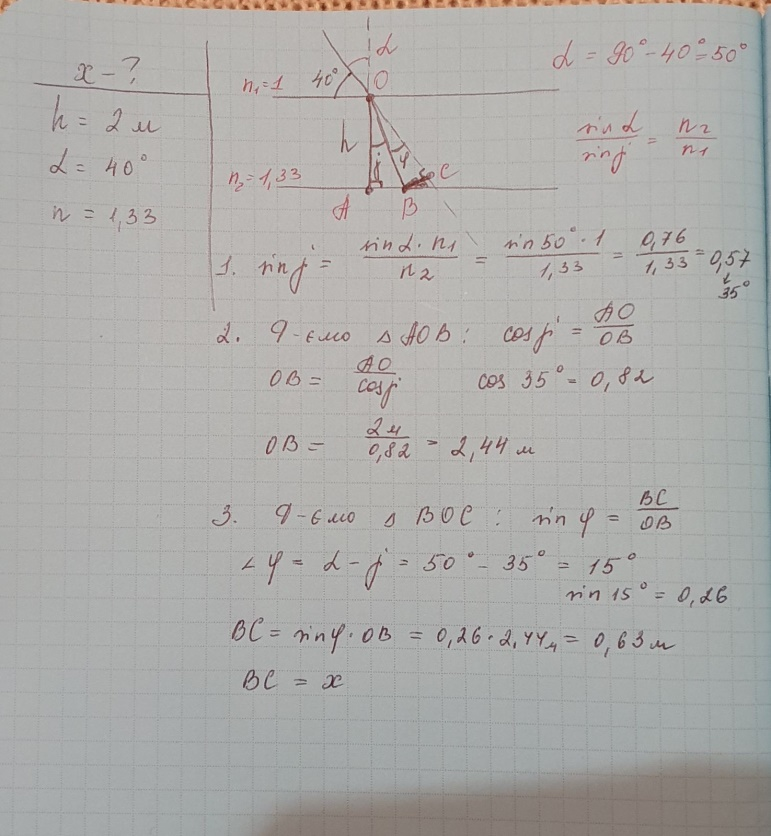 x - ?
h = 2 м
α = 40°
n = 1,33
α
40°
n₁=1
O
h
γ
φ
n₂=1,33
A
B
C
α = 90° - 40° = 50°
sin α / sin γ = n₂ / n₁
1. sin γ = sin α · n₁ / n₂ = sin 50° · 1 / 1,33 = 0,76 / 1,33 = 0,57
↓
35°
2. Р-ємо Δ AOB : cos γ = AO / OB
OB = AO / cos γ cos 35° = 0,82
OB = 2 м / 0,82 = 2,44 м
3. Р-ємо Δ BOC : sin φ = BC / OB
∠ φ = α - γ = 50° - 35° = 15°
sin 15° = 0,26
BC = sin φ · OB = 0,26 · 2,44 м = 0,63 м
BC = x